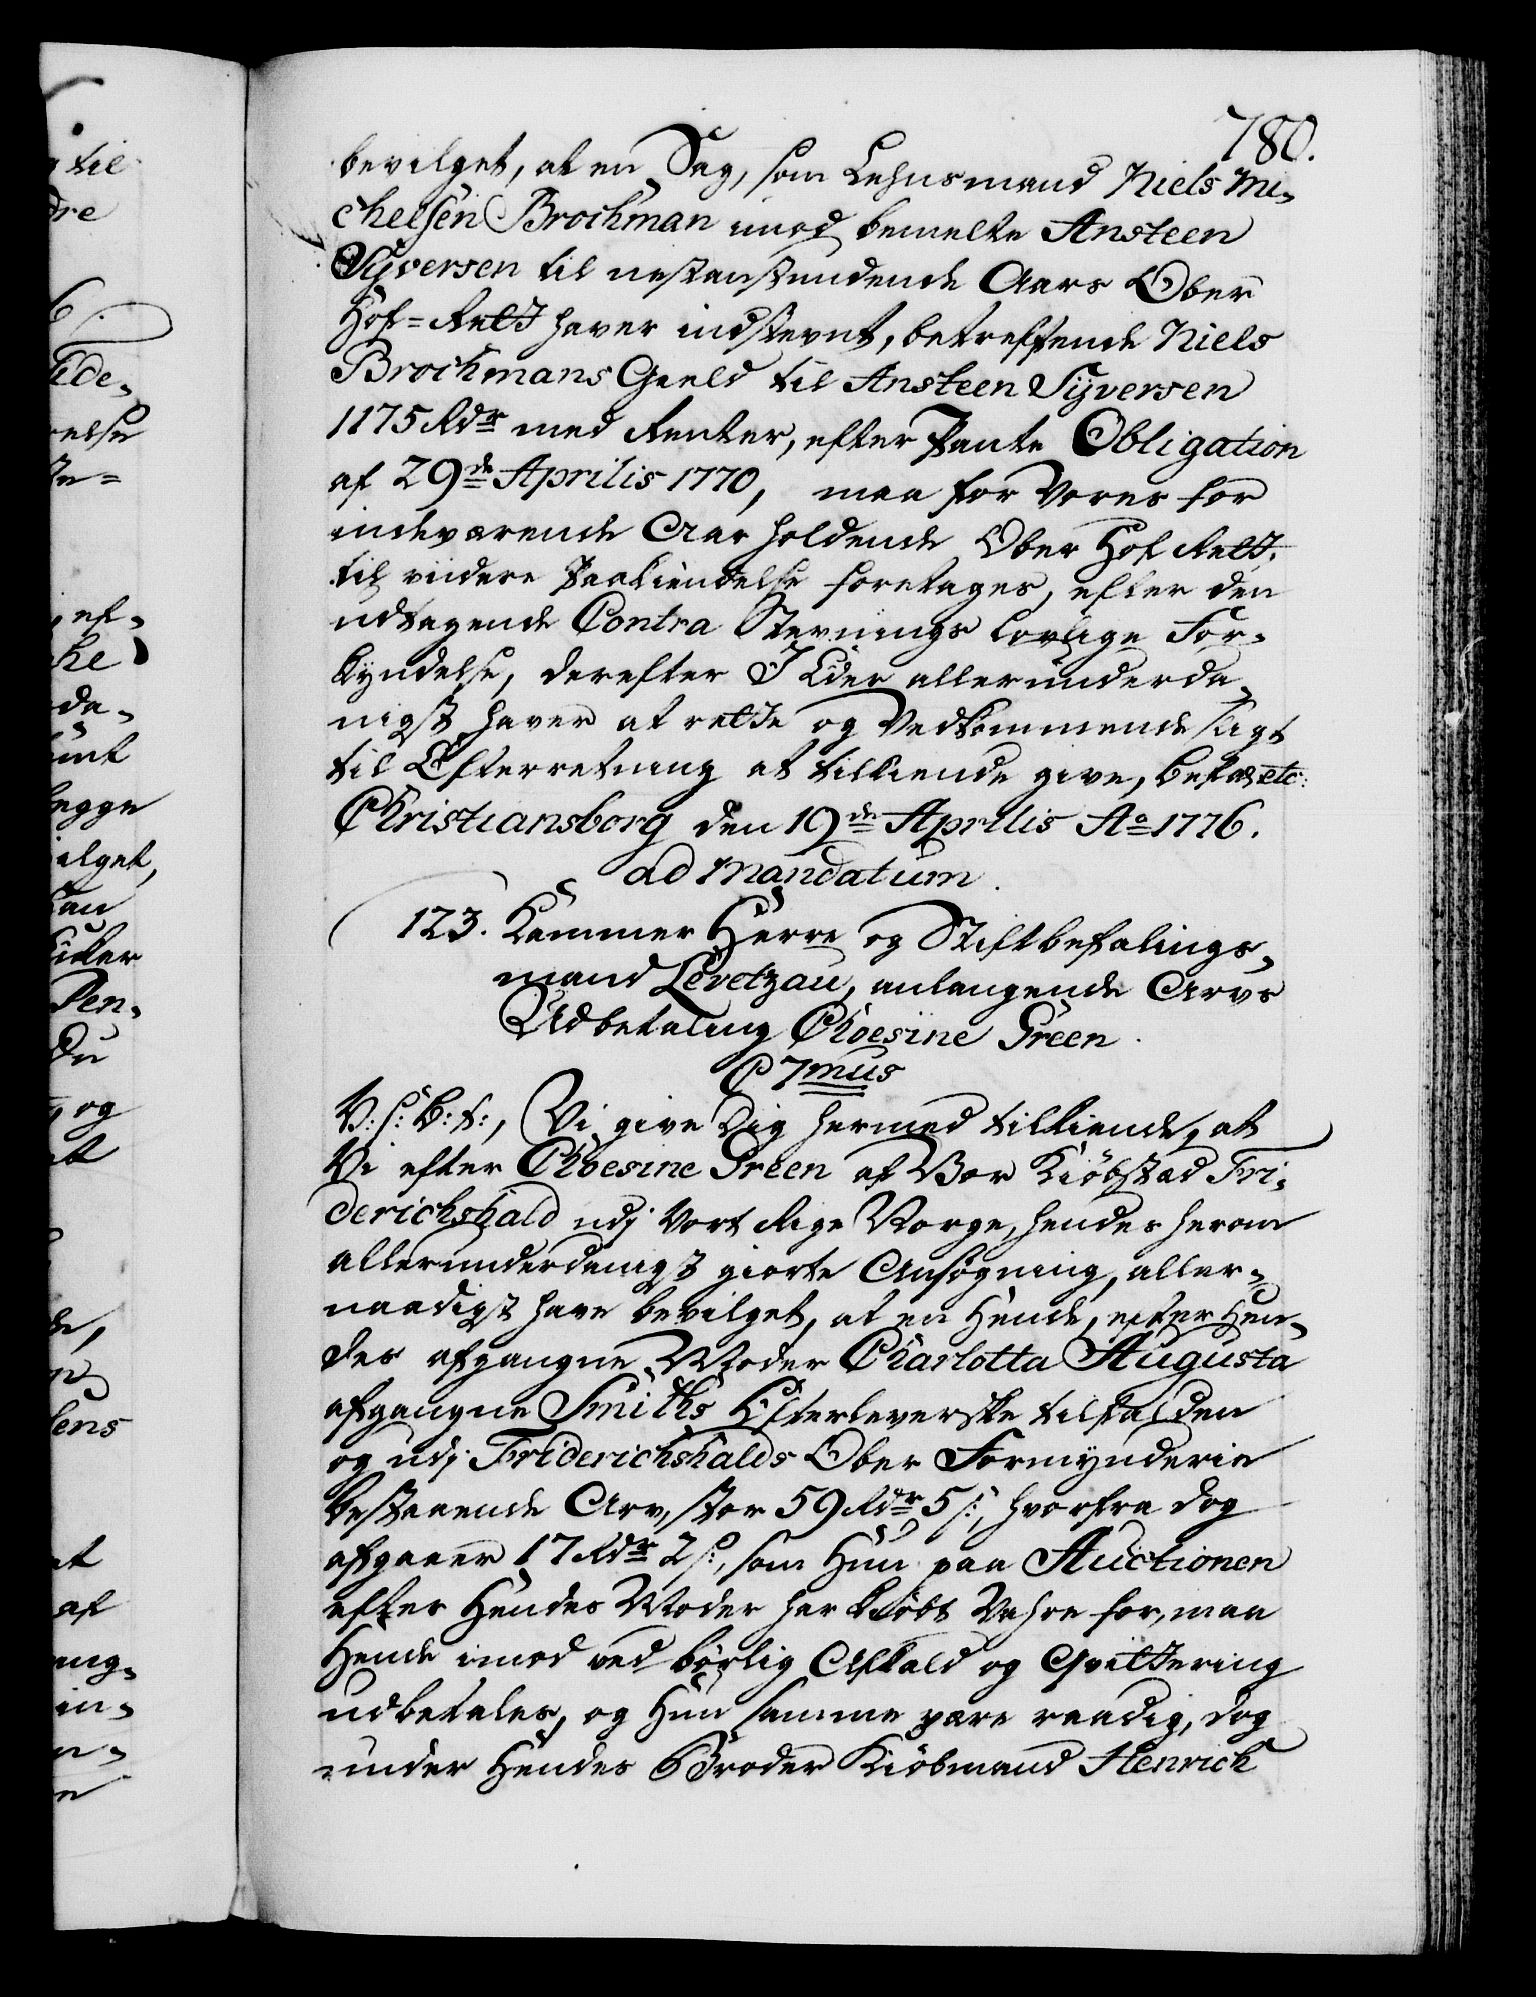 780.
bevilget, at en Sag, som Lehnsmand Niels Mi-
chelsen Brochman imod bemelte Ansteen
Syversen til nestanstundende Aars Ober
Hof=Rett haver indstevnt, betreffende Niels
Brochmans Gield til Ansteen Syversen
1175 Rdr med Renter, efter Pante Obligation
af 29de Aprilis 1770, maa for Vores for
indeværende Aar holdende Ober Hof Rett,
til videre Paakiendelse foretages, efter den
udtagende Contra Stevnings lovlige For-
kyndelse, derefter I Eder allerunderda-
nigst haver at rette og Vedkommende sligt
til Efterretning at tilkiende give, Befal. etc:
Christiansborg den 19de Aprilis Ao 1776.
ad Mandatum.
123. Kammer Herre og Stiftbefalings-
mand Levetzau, anlangende Arvs
Udbetaling Chloesine Green.
C 7mus
V: S: B: t:, Vi give Dig hermed tilkiende, at
Vi efter Chloesine Green af Vor Kiøbstad Fri-
derichshald udj Vort Rige Norge, hendes herom
allerunderdanigst giorte Ansøgning, aller-
naadigst have bevilget, at en Hende, efter Hen-
des afgangne Moder Charlotta Augusta
afgangne Smiths Efterleverske tilfalden
og udj Friderichshalds Ober Formynderie
bestaaende Arv, stor 59 Rdr 5 s:, hvorfra dog
afgaaer 17 Rdr 2 s:, som Hun paa Auctionen
efter Hendes Moder har kiøbt Vahre for, maa
Hende imod ved børlig Afkald og Qvittering
udbetales, og Hun samme være raadig, dog
under Hendes Broder Kiøbmand Henrich